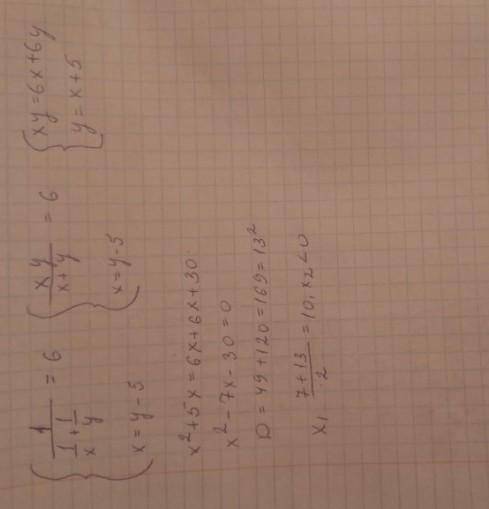 { 1/(1/x + 1/y) = 6 { xy/(x+y) = 6 { xy=6x+6y
x=y-5 x=y-5 y=x+5
x²+5x=6x+6x+30
x²-7x-30=0
D=49+120=169=13²
x₁ (7+13)/2 =10, x₂<0